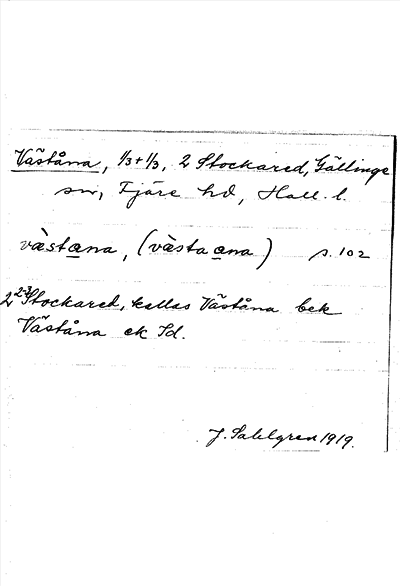 Väståna, 1/3+1/3, 2 Stockared, Gällinge
sn, Fjäre hd, Hall. l.
västana, (västa ana) s. 102
2 2-3 Stockared, kallas Väståna bek
Väståna ek Jd.
J. Sahlgren 1919.